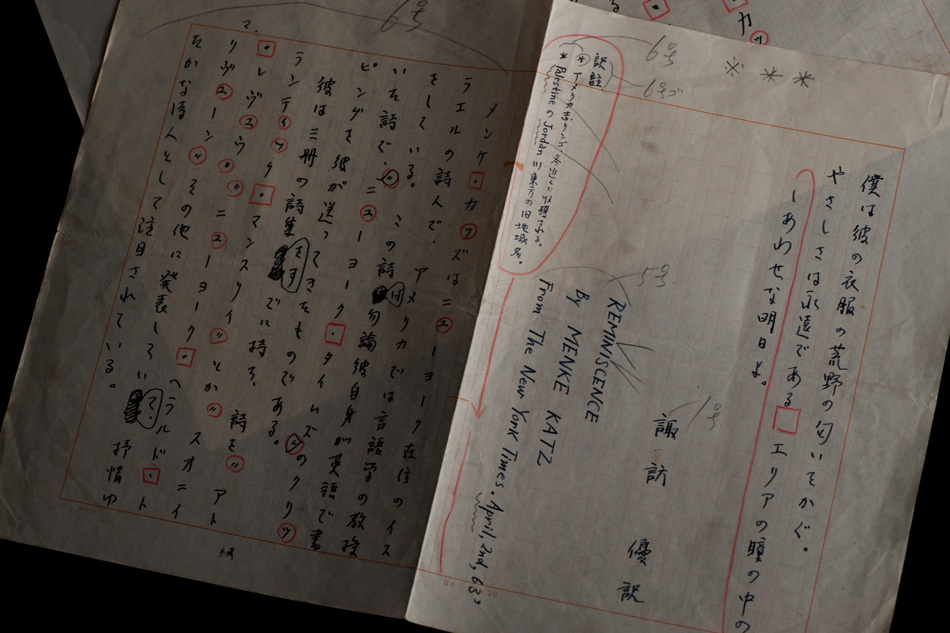 ＊ ＊ ※
僕は彼の衣服の荒野の匂いをかぐ。
やさしさは永遠である エリアの瞳の中の
しあわせな明日よ。
1号
諏訪 優 訳
5号
REMINISCENCE
By MENKE KATZ
From The New York Times. April, 2nd, 63'
6号
6号
訳註
* アメリカ赤リンゴ。冬近くに収穫される。
* PalestineのJordan川東方の旧地域名。
6号
2.
メンケ・カッツはニューヨーク在住のイス
ラエルの詩人で、アメリカでは言語学の教授
をしている。この詩は勿論彼自身が英語で書
いた詩で、ニューヨーク・タイムズのクリッ
ピングを彼が送ってきたものである。
彼は三冊の詩集をすでに持ち、詩をアト
ランティック・マンスリイとかスオニイ
・レヴュウ、ニューヨーク・ヘラルド・ト
リヴューン、その他に発表していて、抒情ゆ
たかな詩人として注目されている。